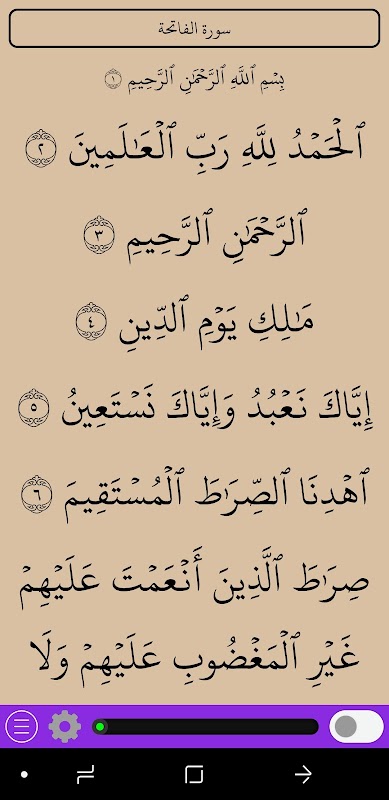 سورة الفاتحة
بِسْمِ ٱللَّهِ ٱلرَّحْمَـٰنِ ٱلرَّحِيمِ ١
ٱلْحَمْدُ لِلَّهِ رَبِّ ٱلْعَـٰلَمِينَ ٢
ٱلرَّحْمَـٰنِ ٱلرَّحِيمِ ٣
مَـٰلِكِ يَوْمِ ٱلدِّينِ ٤
إِيَّاكَ نَعْبُدُ وَإِيَّاكَ نَسْتَعِينُ ٥
ٱهْدِنَا ٱلصِّرَٰطَ ٱلْمُسْتَقِيمَ ٦
صِرَٰطَ ٱلَّذِينَ أَنْعَمْتَ عَلَيْهِمْ
غَيْرِ ٱلْمَغْضُوبِ عَلَيْهِمْ وَلَا